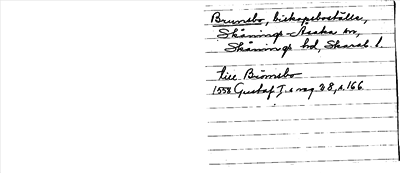 Brunsbo, biskopsboställe,
Skånings-Åsaka sn,
Skånings hd, Skarab. l.
till Biömsbo
1558 Gustaf I:s reg. 28, s. 166